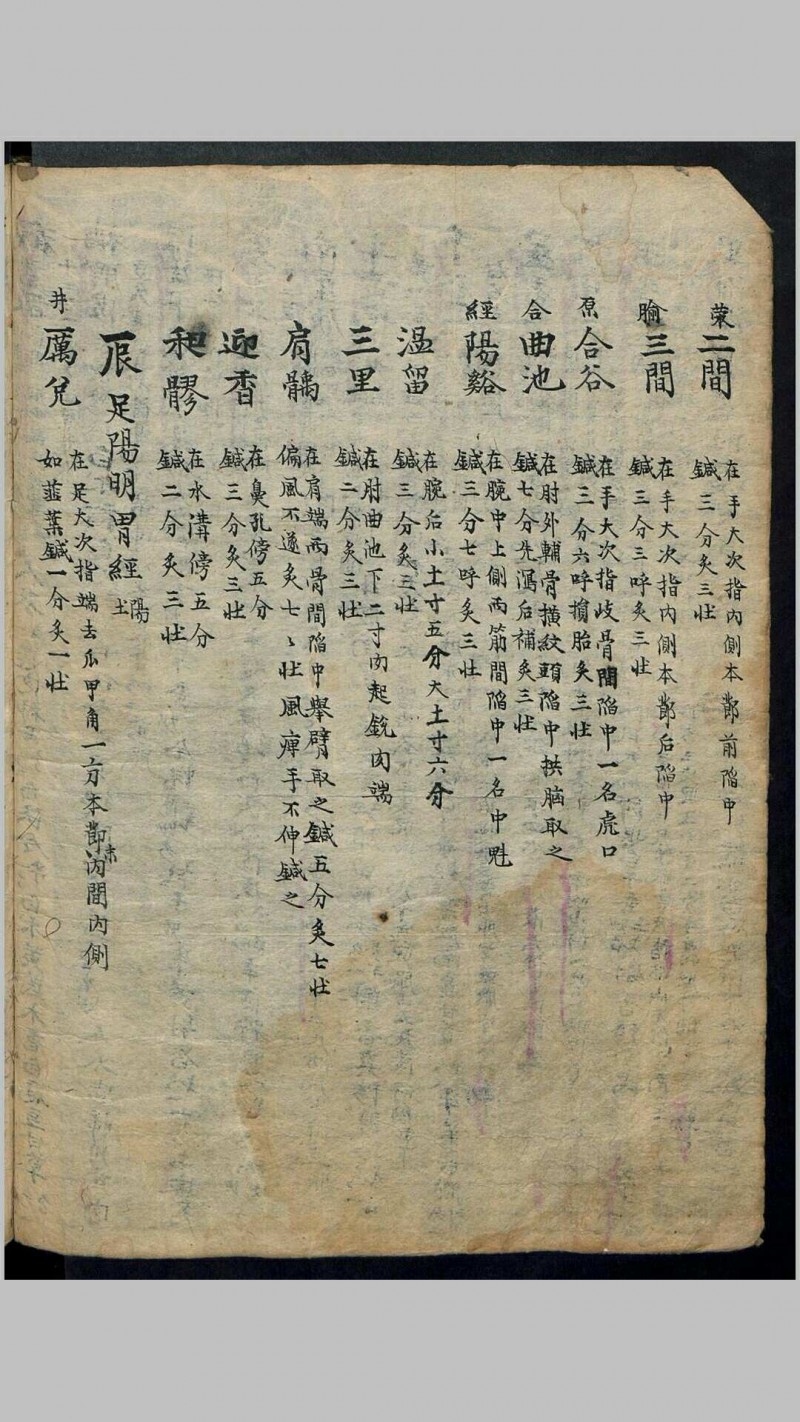 荣二間
在手大次指內側本節前陷中
鍼三分灸三壮
腧三間
在手大次指內側本節后陷中
鍼三分三呼灸三壮
原合谷
在手大次指歧骨間陷中一名虎口
鍼三分六呼損胎灸三壮
合曲池
在肘外輔骨橫紋頭陷中拱胸取之
鍼七分先瀉后補灸三壮
經陽谿
在腕中上側两筋間陷中一名中魁
鍼三分七呼灸三壮
温留
在腕后小士寸五分大士寸六分
鍼三分灸三壮
三里
在肘曲池下二寸肉起銳肉端
鍼二分灸三壮
肩髃
在肩端两骨間陷中舉臂取之鍼五分灸七壮
偏風不遂灸七〻壮風痺手不伸鍼之
迎香
在鼻孔傍五分
鍼三分灸三壮
和髎
在水溝傍五分
鍼二分灸三壮
辰足陽明胃經陽土
井厲兌
在足大次指端去爪甲角一分本節末間內側
如韮葉鍼一分灸一壮